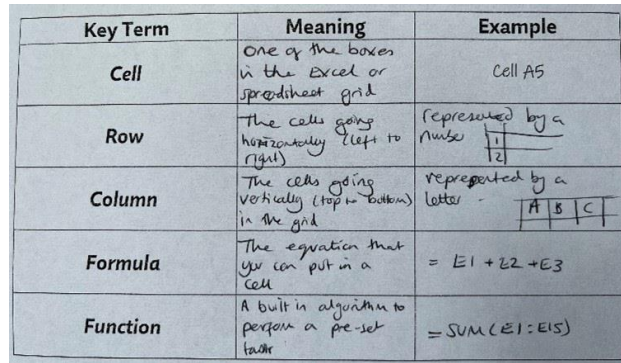 Key Term Meaning Example
Cell
One of the boxes
in the Excel or
spreadsheet grid
Cell A5
Row
The cells going
horizontally (left to
right)
represented by a
1
2
Column
The cells going
vertically (top to bottom)
in the grid
represented by a
letter -
A B C
Formula
The equation that
you can put in a
cell
= E1 + E2 + E3
Function
A built in algorithm to
perform a pre-set
= SUM(E1:E15)